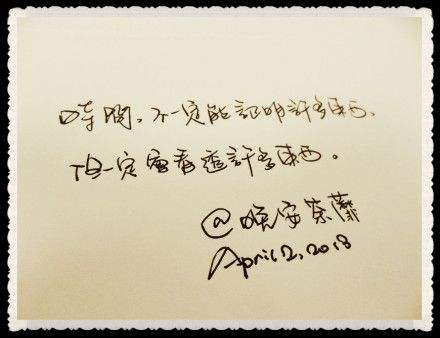 時間，不一定能証明許多東西，
但一定會看透許多東西。
@晚安紫蘿
April 2, 2018